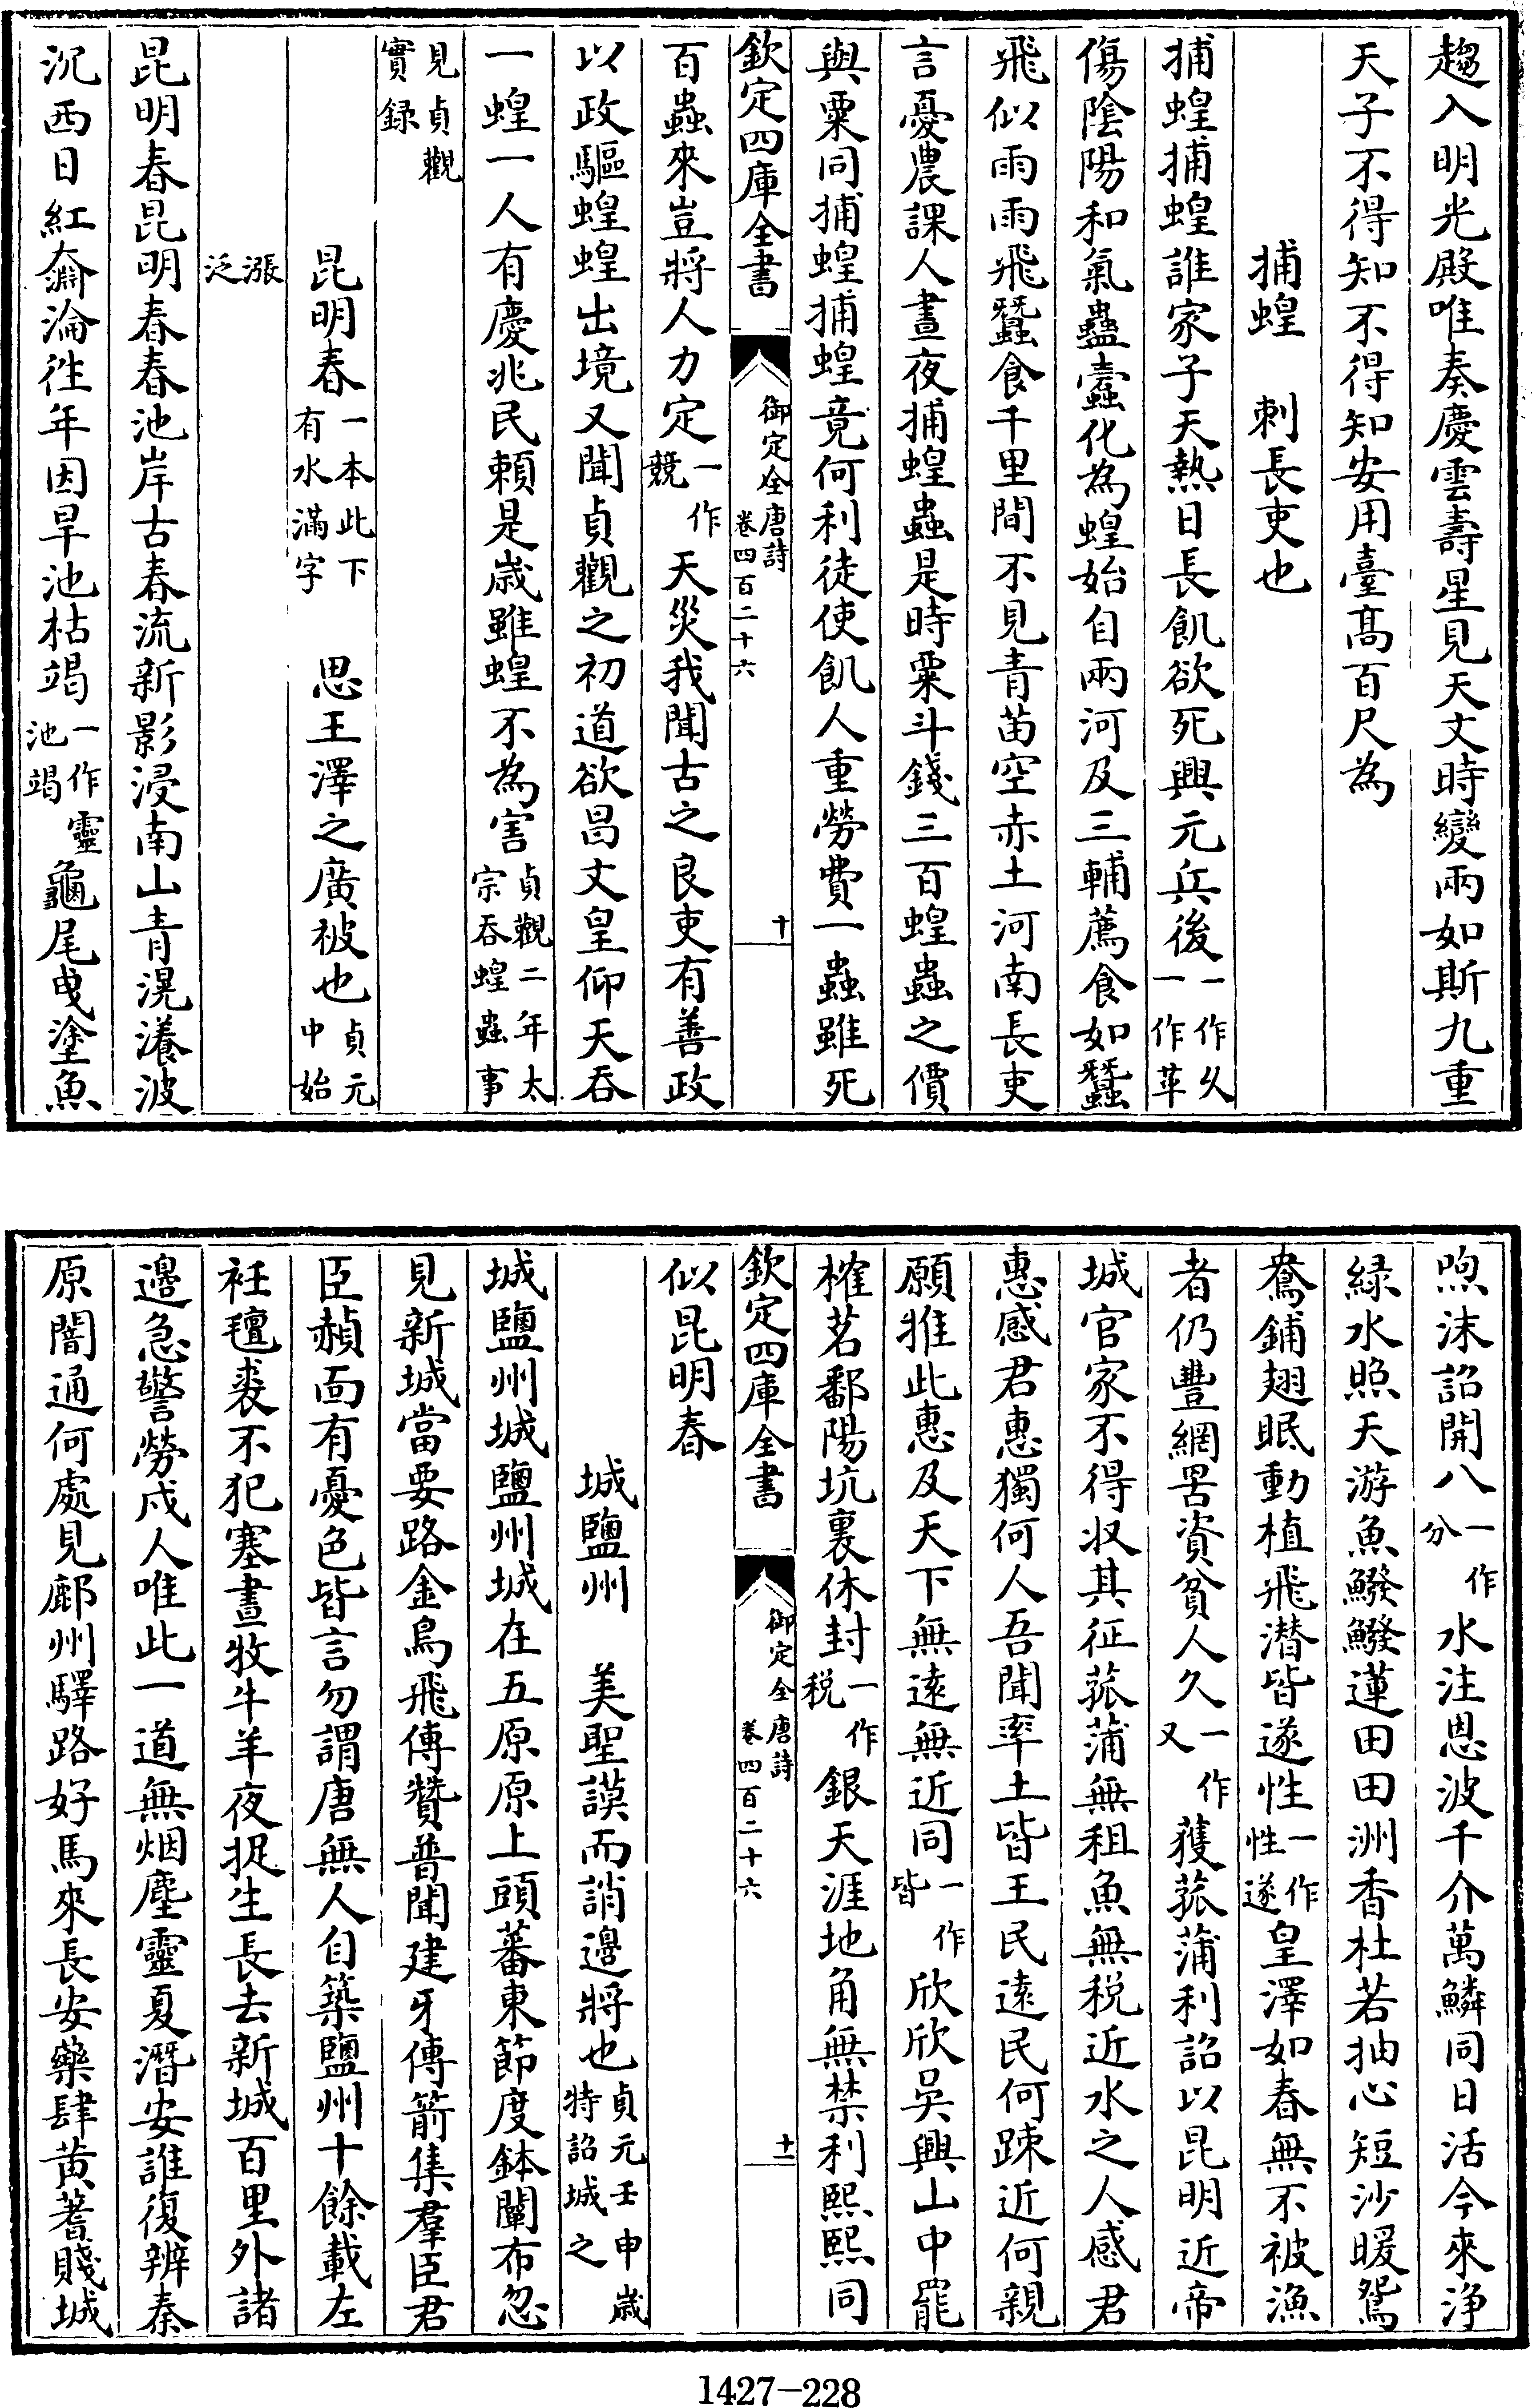 趨入明光殿唯奏慶雲壽星見天文時變兩如斯九重
天子不得知不得知安用臺髙百尺為
捕蝗　刺長吏也
捕蝗捕蝗誰家子天熱日長飢欲死興元兵後一作久一作革
傷陰陽和氣蠱蠧化為蝗始自兩河及三輔薦食如蠶
飛似雨雨飛蠶食千里間不見青苗空赤土河南長吏
言憂農課人晝夜捕蝗蟲是時粟斗錢三百蝗蟲之價
與粟同捕蝗捕蝗竟何利徒使飢人重勞費一蟲雖死
欽定四庫全書　御定全唐詩卷四百二十六　十
百蟲來豈將人力定一作競天災我聞古之良吏有善政
以政驅蝗蝗出境又聞貞觀之初道欲昌文皇仰天吞
一蝗一人有慶兆民賴是歲雖蝗不為害貞觀二年太宗吞蝗蟲事
見貞觀實録
昆明春一本此下有水滿字　思王澤之廣被也貞元中始
漲泛
昆明春昆明春春池岸古春流新影浸南山青滉瀁波
沉西日紅奫淪徃年因旱池枯竭一作靈池竭龜尾曳塗魚
煦沫詔開八一作分水注恩波千介萬鱗同日活今來浄
緑水照天游魚鱍鱍蓮田田洲香杜若抽心短沙暖鴛
鴦鋪翅眠動植飛潛皆遂性一作性遂皇澤如春無不被漁
者仍豐網罟資貧人久一作又蒱菰蒲利詔以昆明近帝
城官家不得収其征菰蒲無租魚無税近水之人感君
惠感君惠獨何人吾聞率土皆王民逺民何踈近何親
願推此惠及天下無逺無近同一作皆欣欣吳興山中罷
榷茗鄱陽坑裏休封一作税銀天涯地角無禁利熙熙同
欽定四庫全書　御定全唐詩卷四百二十六　十一
似昆明春
城鹽州　美聖謨而誚邊將也貞元壬申歲特詔城之
城鹽州城鹽州城在五原原上頭蕃東節度鉢闡布忽
見新城當要路金鳥飛傳贊普聞建牙傳箭集羣臣君
臣赬面有憂色皆言勿謂唐無人自築鹽州十餘載左
衽氊裘不犯塞晝牧牛羊夜捉生長去新城百里外諸
邊急警勞戍人唯此一道無烟塵靈夏潛安誰復辨秦
原闇通何處見鄜州驛路好馬來長安藥肆黄蓍賤城
1427-228